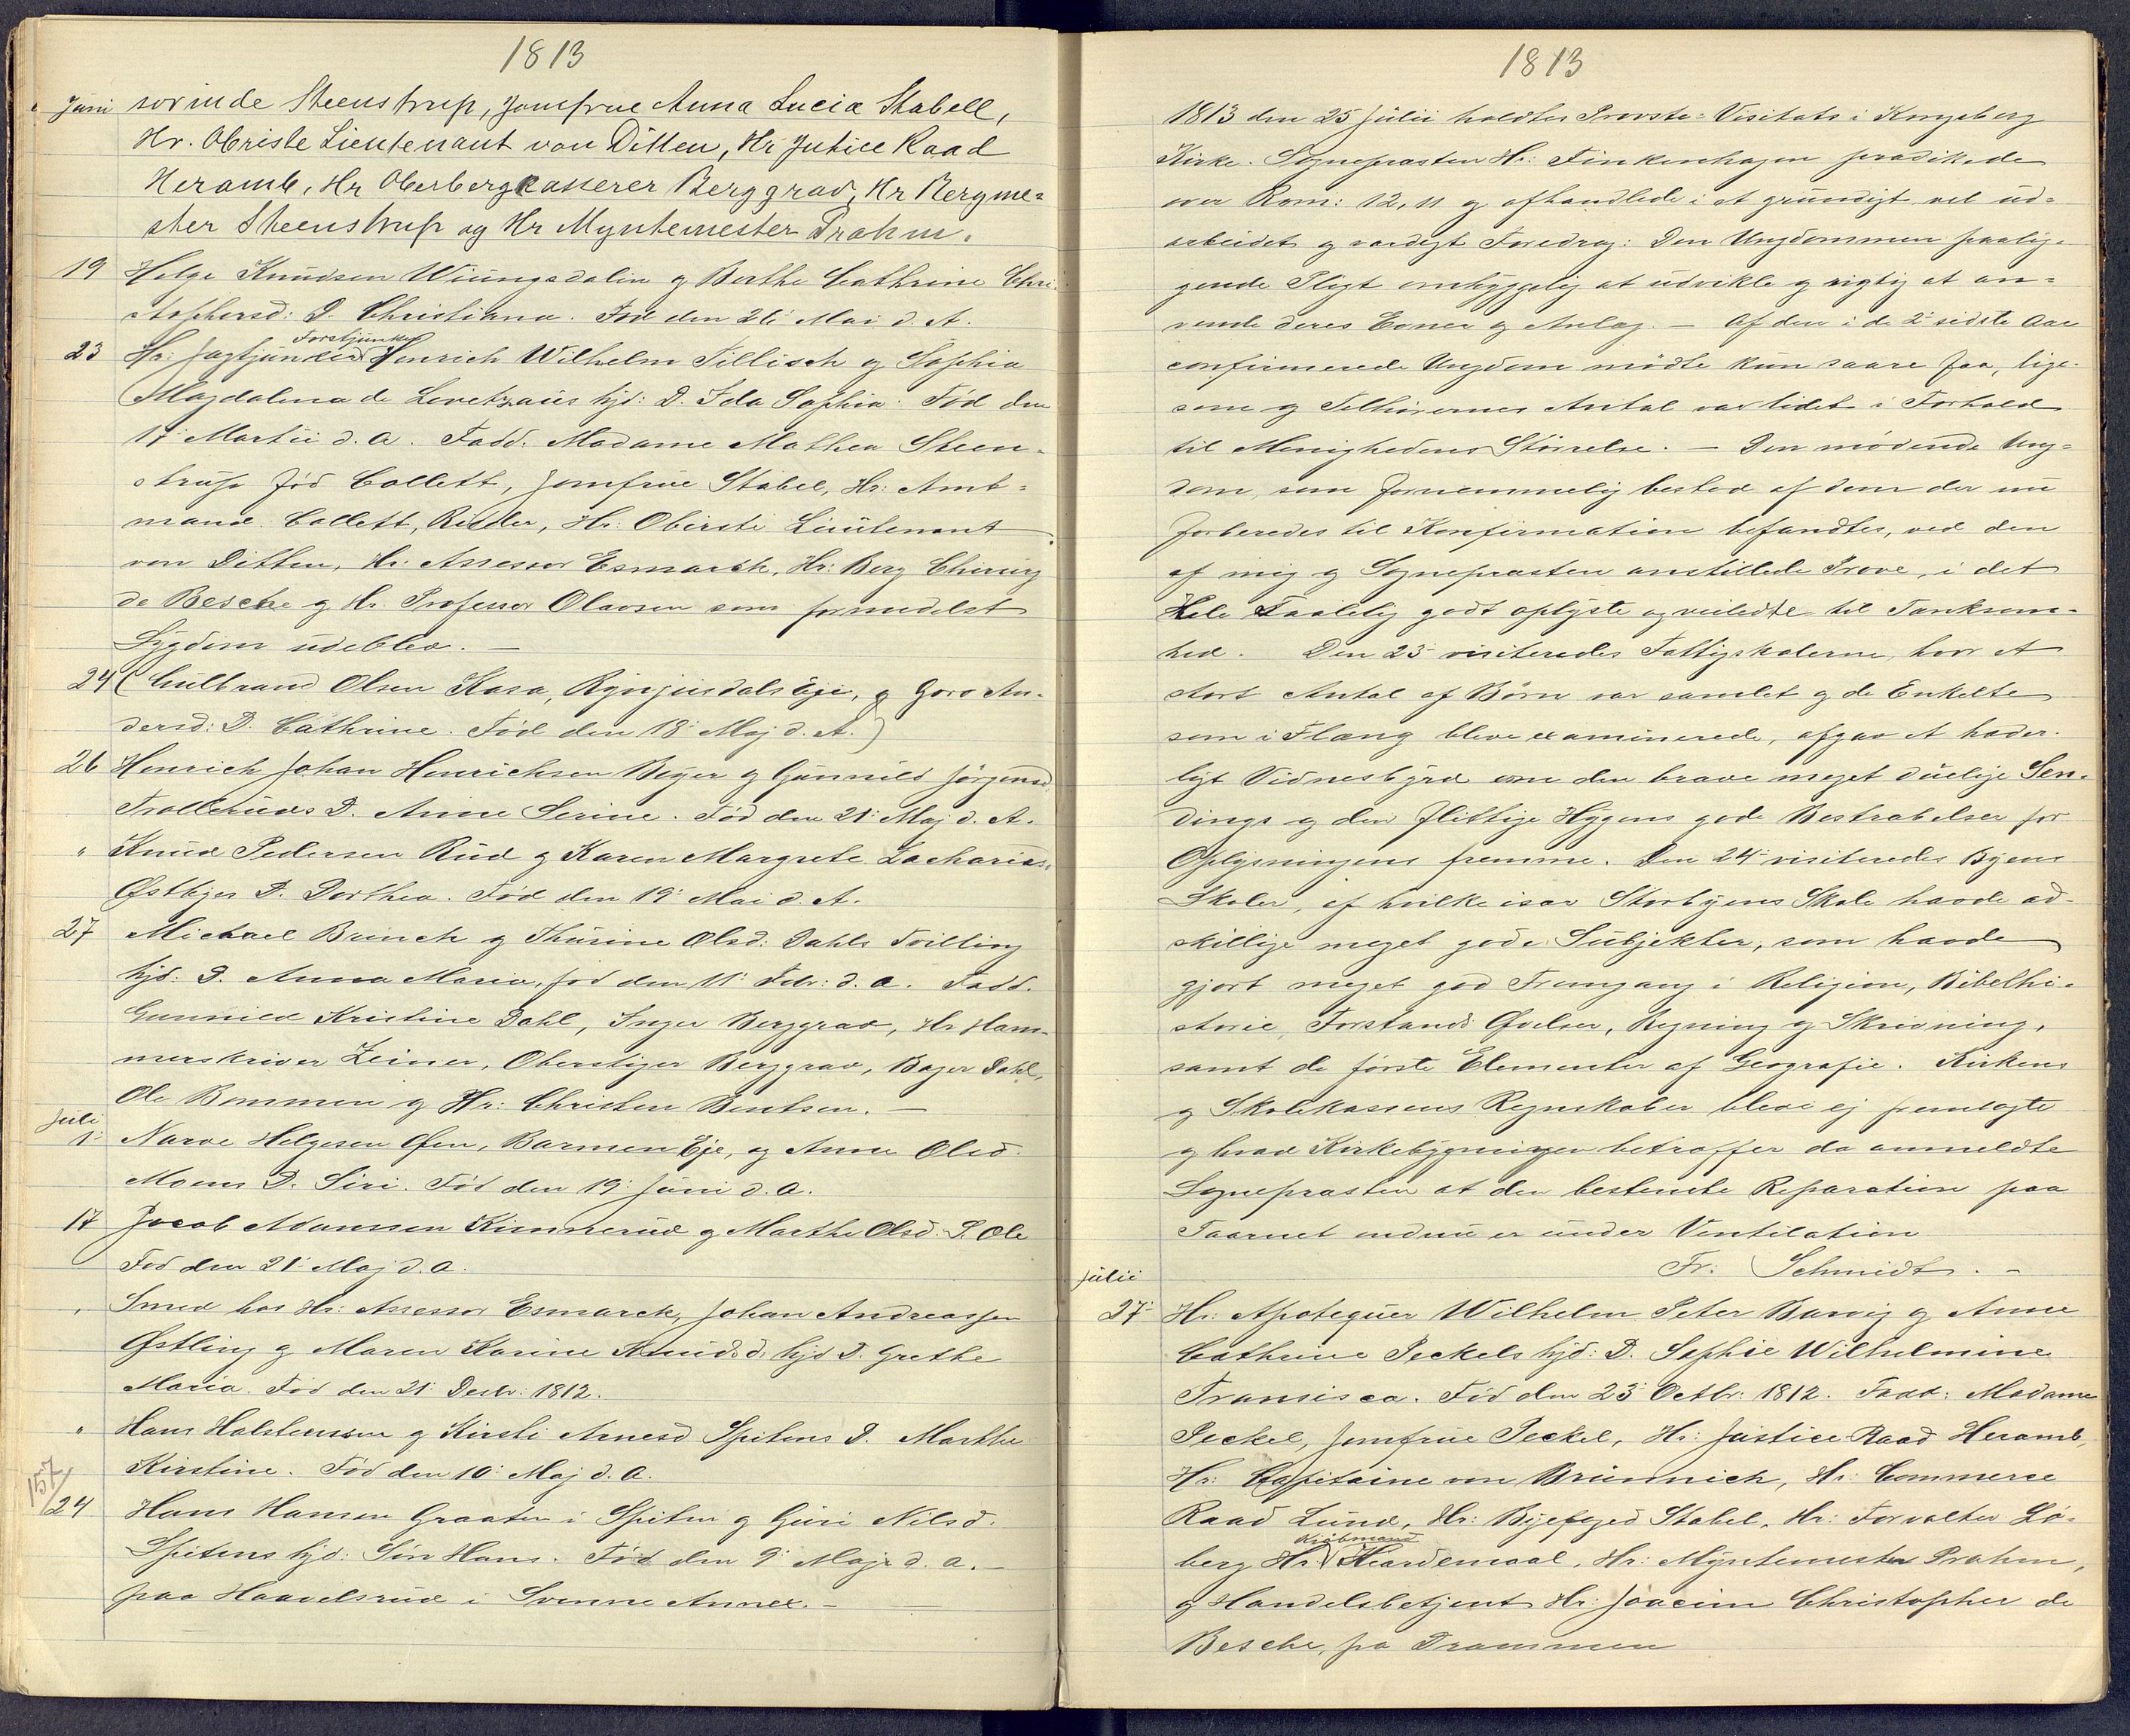 1813
Juni sorinde Steenstrup, Jomfrue Anna Lucia Stabell,
Hr. Obriste Lieutenant von Ditten, Hr Jutice Raad
Heramb, Hr Oberbergcasserer Berggrav, Hr Bergme-
ster Steenstrup og Hr Myntemester Prahm.
19 Helge Knudsen Wiungsdalen og Berthe Cathrine Chri-
stophersd: D. Christiana. Fød den 26 Mai d. A.
Forstjunker
23 Hr: Jagtjunker Henrich Wilhelm Tillisch og Sophia
Magdalena de Levetzaus hjd: D. Ida Sophia. Fød den
17 Martii d. A. Fadd. Madame Mathea Steen-
strup fød Collett, Jomfrue Stabel, Hr: Amt-
mand Collett, Ridder, Hr: Obirste Lieutenant
von Ditten, Hr. Assessor Esmarch, Hr: Berg Chirurg
de Besche og Hr. Professor Olavsen som formedelst
Sygdom udeblev. —
24 (Gulbrand Olsen Kasa, Eje, og Goro An-
dersd: D. Cathrine. Fød den 18 Maj d. A.)
26 Henrich Johan Henrichsen Beyer og Gunnild Jørgensd
Trolleruds D. Anne Serine. Fød den 21 Maj d. A.
" Knud Pedersen Rud og Karen Margrete Zacharias.
Østbyes D. Dorthea. Fød den 19 Mai d. A.
27 Michael Brinch og Thurine Olsd: Dahls Tvilling
hjd: D. Anna Maria, fød den 11 Febr: d. A. Fadd.
Gunnild Kristine Dahl, Inger Berggrav, Hr Ham-
merskriver Zeiner, Oberstiger Berggrav, Bager Dahl,
Ole Bommen og Hr: Christen Bentsen. —
Juli
1 Narve Helgesen Øen, Barmen Eje, og Anne Olsd.
Moens D. Siri. Fød den 19 Juni d. A.
17 Jacob Adamsen Kimerud og Marthe Olsd. S. Ole
Fød den 21 Maj d. A.
" Smed hos Hr: Assessor Esmarck, Johan Andreassen
Østling og Maren Karine Knudsd. hjd D. Grethe
Maria. Fød den 21 Decbr: 1812.
" Hans Halstensen og Kirsti Arnesd Spitens D. Marthe
Kirstine. Fød den 10 Maj d. A.
157
24 Hans Hansen Graaten i Spiten og Guri Nilsd.
Spitens hjd: Søn Hans. Fød den 9 Maji d. A. —
paa Haavelsrud i Svenne Annex. —
1813
1813 den 25 Julii holdtes Provste-Visitats i Kongsberg
Kirke. Sognepræsten Hr: Finkenhagen prædikede
over Rom: 12, 11 og afhandlede i et grundigt vel ud-
arbeidet og værdigt Foredrag: Den Ungdommen paalig-
gende Pligt omhyggelig at udvikle og rigtig at an-
vende deres Evner og Anlæg. — Af den i de 2 sidste Aar
confirmerede Ungdom mødte kun saare faa, lige-
som og Tilhørernes Antal var lidet i Forhold
til Menighedens Størrelse. — Den mødende Ung-
dom, som fornemmelig bestod af dem der nu
forberedes til Konfirmation befandtes, ved den
af mig og Sognepræsten anstillede Prøve, i det
Hele taalelig godt oplyste og veiledte til Tænksom-
hed. Den 23 visiteredes Fattigskolerne, hvor et
stort Antal af Børn var samlet og de Enkelte
som i Flæng bleve examinerede, afgav et hæder-
ligt Vidnesbyrd om den brave meget duelige Sen-
dings og den flittige Hygens gode Bestræbelser for
Oplysningens fremme. Den 24 visiteredes Byens
Skoler, af hvilke især Storbyens Skole havde ad-
skillige meget gode Subjekter, som havde
gjort meget god Fremgang i Religion, Bibelhi-
storie, Forstands Øvelser, Regning og Skrivning,
samt de første Elementer af Geografie. Kirkens
og Skolekassens Regnskaber bleve ej fremlagte
og hvad Kirkebygningen betræffer da anmeldte
Sognepræsten at den bestemte Reparation paa
Taarnet endnu er under Ventilation
Fr: Schmidt. —
Julii
27 Hr: Apotequer Wilhelm Peter Barvig og Anne
Cathrine Peckels hjd: D. Sophie Wilhelmine
Fransisca. Fød den 23 Octbr: 1812. Fadd: Madame
Peckel, Jomfrue Peckel, Hr: Justice Raad Heramb,
Hr: Capitaine von Brünnich, Hr: Commerce
Raad Lund, Hr: Byefoged Stabel, Hr: Forvalter Lø-
Kjøbmand
berg Hr: Hiardemaal, Hr: Myntemester Prahm,
og Handelsbetjent Hr: Joacim Christopher de
Besche, fra Drammen